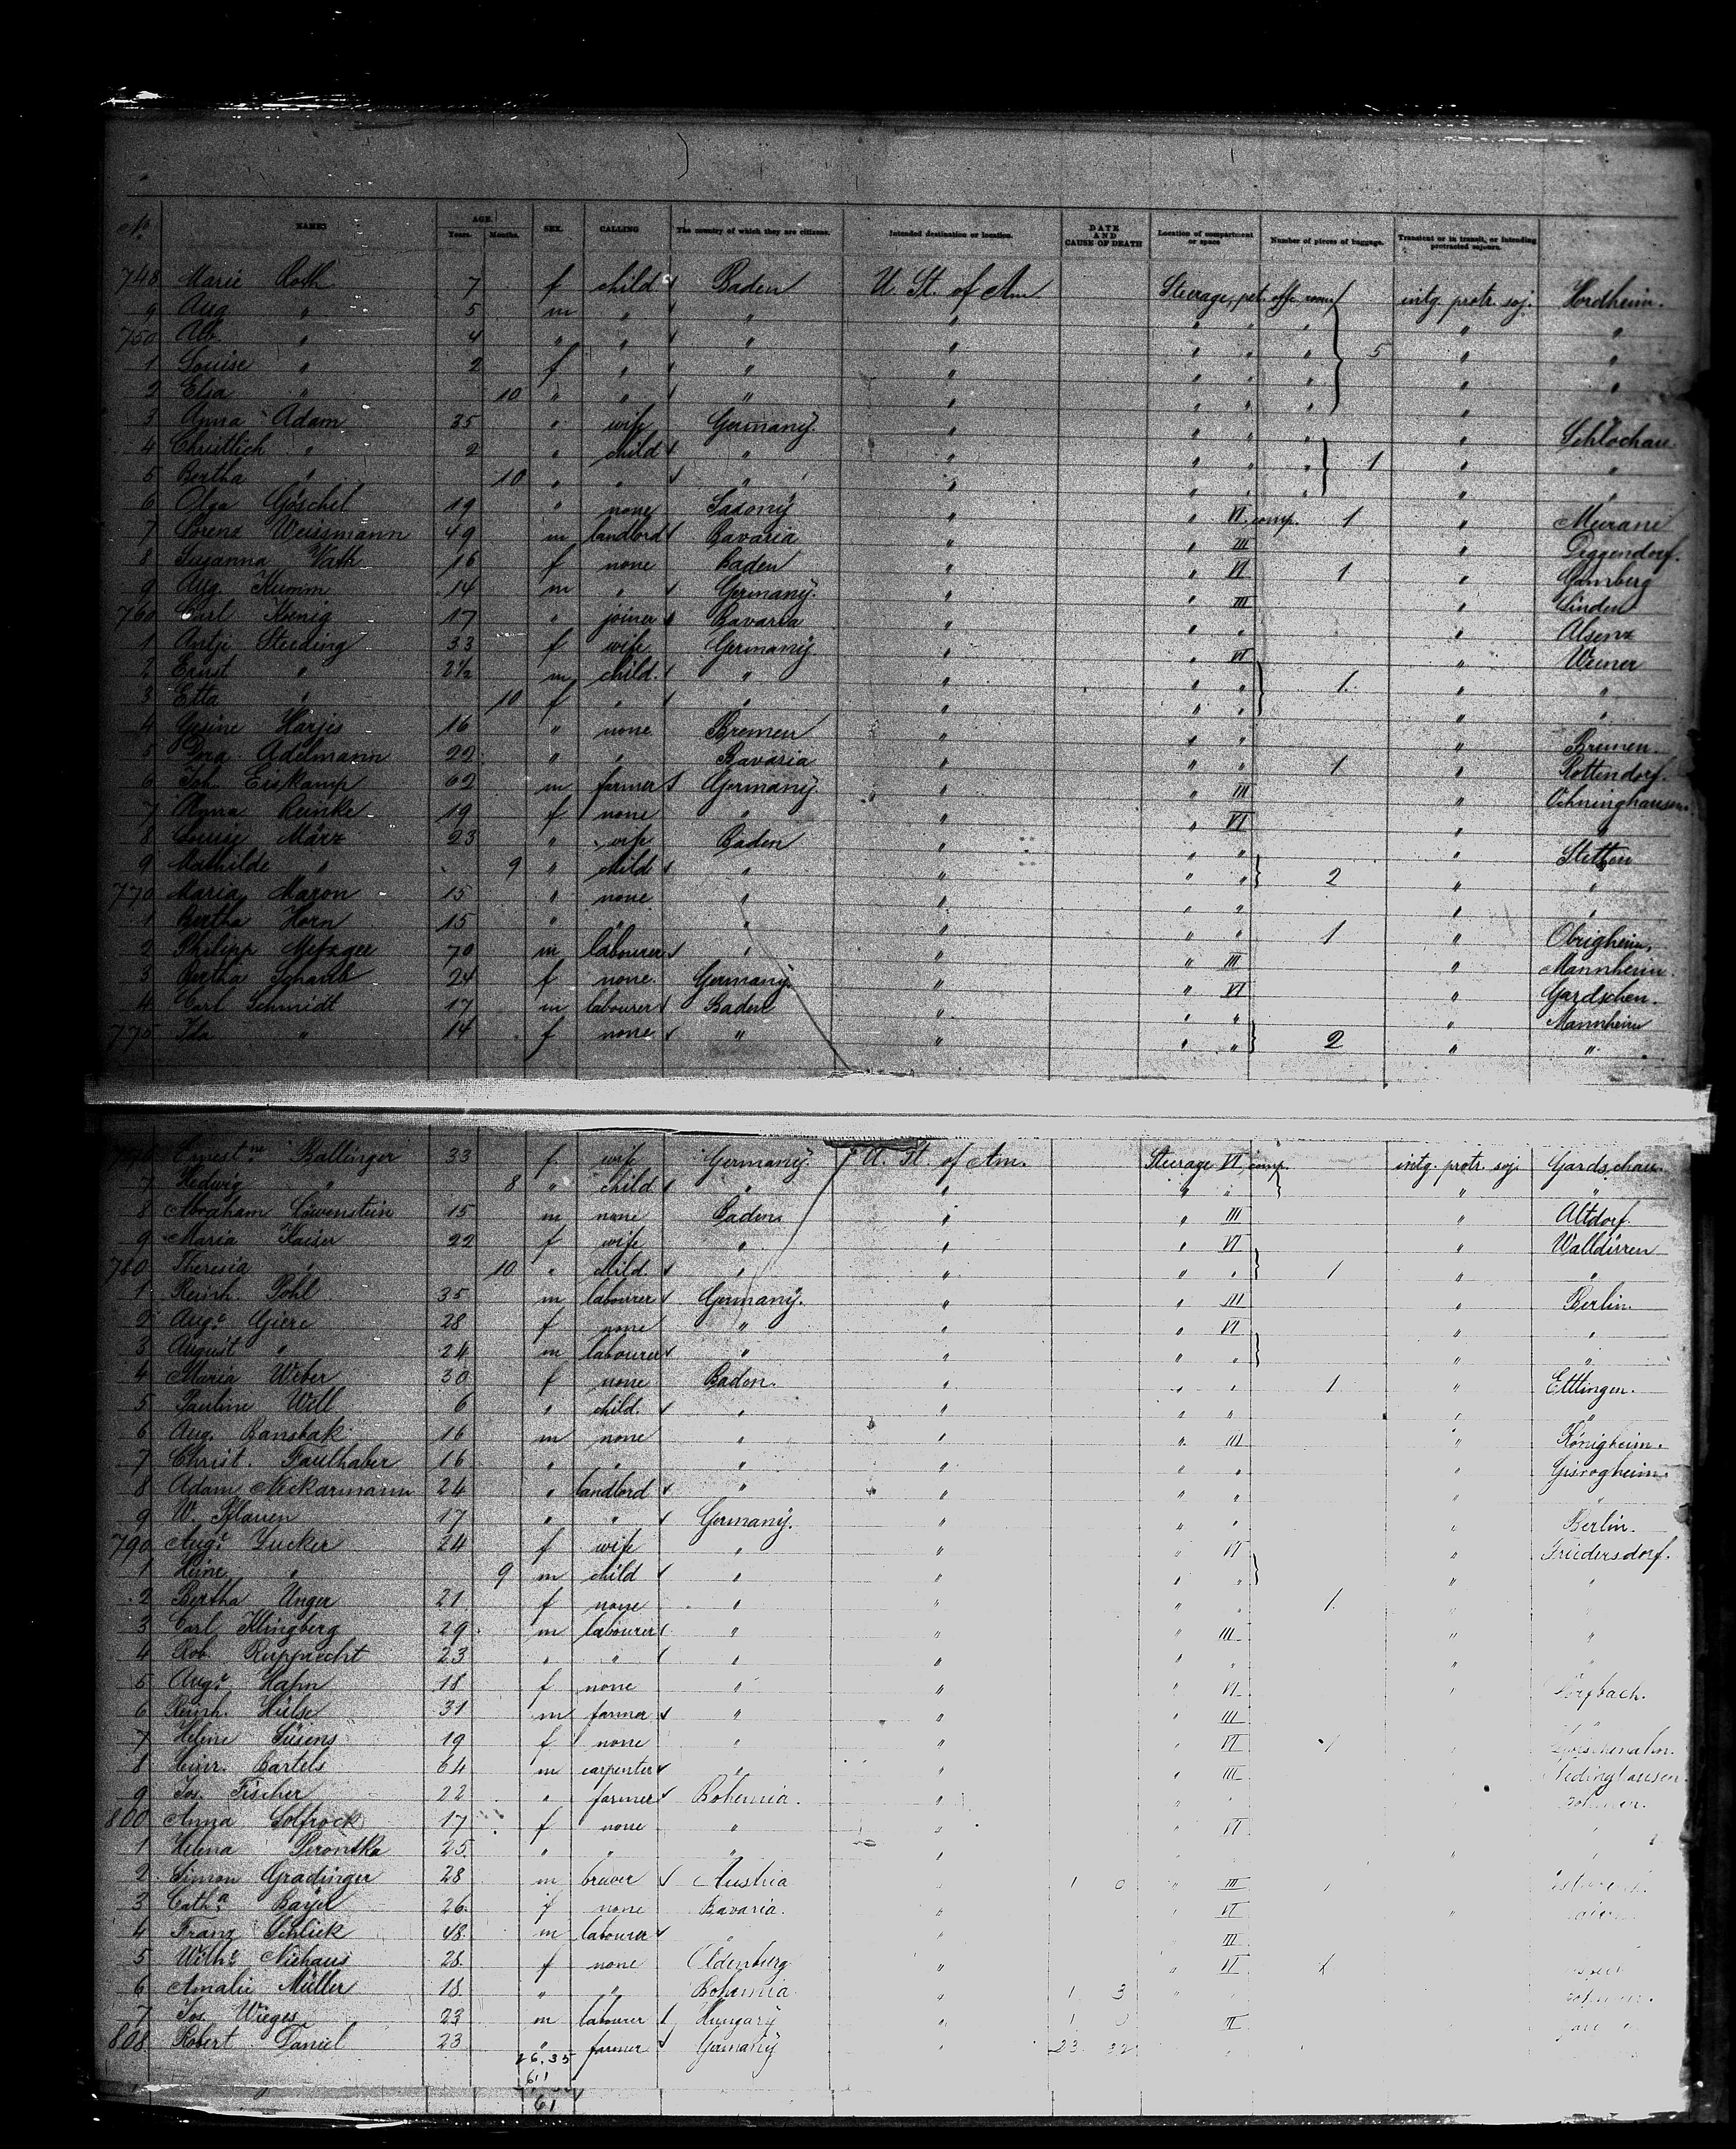 No. NAMES AGE. Years. Months. SEX. CALLING The country of which they are citizens. Intended destination or location. DATE AND CAUSE OF DEATH Location of compartment or space Number of pieces of baggage. Transient or in transit, or intending protracted sojourn.
748 Marie Roth 7 f child Baden U. St. of Am. Steerage, intg. protr. soj. Nordheim.
9 Aug. " 5 m " " " " " " " "
750 Alb. " 4 " " " " " " " 5 " "
1 Louise " 2 f " " " " " " " "
2 Elsa " 10 " " " " " " " "
3 Anna Adam 35 " wife Germany. " " " " " Schlochau
4 Christlich " 2 " child " " " " " 1 " "
5 Bertha " 10 " " " " " " " " "
6 Olga Göschel 19 " none Saxony " " VI comp. 1 " Meerane
7 Lorenz Weissmann 49 m landlord Bavaria " " III " Deggendorf.
8 Susanna Vath 16 f none Baden " " VI 1 " Gamberg
9 Aug. Kumm 14 m " Germany. " " III " Linden
760 Carl Koenig 17 " joiner Bavaria " " " " Alsenz
1 Antje Steeding 33 f wife Germany " " VI " Weener
2 Ernst " 2½ m child. " " " " 1. " "
3 Etta " 10 f " " " " " " "
4 Gesine Harjes 16 " none Bremen " " " " Bremen.
5 Adelmann 22 " " Bavaria " " " 1 " Rottendorf.
6 Joh. Eiskamp 62 m farmer Germany " " III " Ohninghausen.
7 Anna Reinke 19 f none " " " VI " "
8 Louise März 23 " wife Baden " " " " Stetten
9 Mathilde " 9 " child " " " " 2 " "
770 Maria Maron 15 " none " " " " " "
1 Bertha Horn 15 " " " " " " 1 " Obrigheim,
2 Philipp Metzger 70 m labourer " " " III " Mannheim
3 Bertha Schaub 24 f none. Germany. " " VI " Gardschen.
4 Carl Schmidt 17 m labourer Baden " " " " Mannheim
775 Ida " 14 f none " " " " 2 " "
776 Ernestne Ballinger 33 f. wife Germany. U. St. of Am. Steerage VI comp. intg. protr. soj. Gardschau.
7 Hedwig " 8 " child " " " " " "
8 Abraham Löwenstein 15 m none Baden. " " III " Altdorf
9 Maria Kaiser 22 f wife " " " VI " Walldürren
780 Theresia " 10 " child. " " " " 1 " "
1 Reinh. Pohl 35 m labourer Germany. " " III " Berlin.
2 Auge. Giere 28 f none " " " VI " "
3 August " 24 m labourer " " " " " "
4 Maria Weber 30 f none Baden. " " " 1 " Ettlingen.
5 Pauline Will 6 " child. " " " " " "
6 Aug. Bansbak 16 m none " " " III " Königheim.
7 Christ. Faulhaber 16 " " " " " " " Gisrogheim.
8 Adam Neckarmann 24 " landlord " " " " " "
9 W. Pflauen 17 " " Germany. " " " " Berlin.
790 Auge. Zucker 24 f wife " " " VI " Friedersdorf.
1 Heinr. " 9 m child " " " " " "
2 Bertha Unger 21 f none " " " " 1. " "
3 Carl Klingberg 29 m labourer " " " III " "
4 Rob. Rupprecht 23 " " " " " " " "
5 Auge. Hahn 18 f none " " " VI "
6 Reinh. Hülse 31 m farmer " " " III
7 Helene Süsens 19 f none " " " VI 1
8 Heinr. Bartels 64 m carpenter " " " III
9 Jos. Fischer 22 " farmer Bohemia. " " "
800 Anna Solfrock 17 f none " " " VI
1 Helena Perontka 25. " " " "
2 Simon Gradinger 28 m brewer Austria " 1 0 " III
3 Catha. Bayer 26. f none Bavaria. " " VI "
4 Franz Schlick 48. m labourer " III
5 Wilhe. Niehaus 28. f none Oldenberg " " VI 1
6 Amalie Müller 18 " " Bohemia " 1 3 "
7 Jos. Wieges 23 m labourer Hungary " 1 0 II
808 Robert Daniel 23 " farmer Germany " 23 32
26.35
611
61